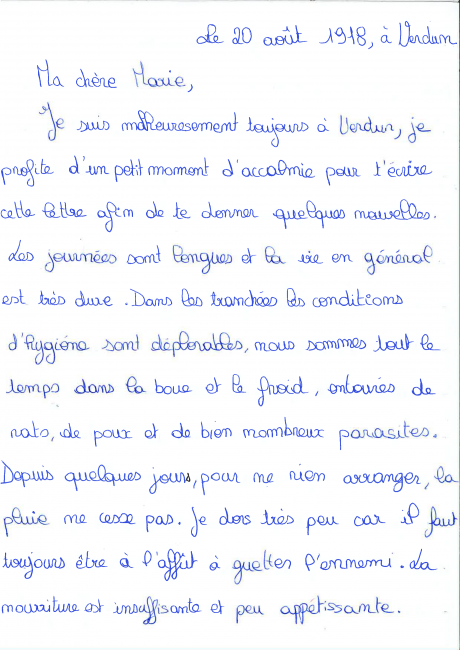 Le 20 août 1918, à Verdun
Ma chère Marie,
Je suis malheuresement toujours à Verdun, je
profite d'un petit moment d'accalmie pour t'écrire
cette lettre afin de te donner quelques nouvelles.
Les journées sont longues et la vie en général
est très dure. Dans les tranchées les conditions
d'hygiène sont déplorables, nous sommes tout le
temps dans la boue et le froid, entourés de
rats, de poux et de bien nombreux parasites.
Depuis quelques jours, pour ne rien arranger, la
pluie ne cesse pas. Je dors très peu car il faut
toujours être à l'affût à guetter l'ennemi. La
nourriture est insuffisante et peu appétissante.